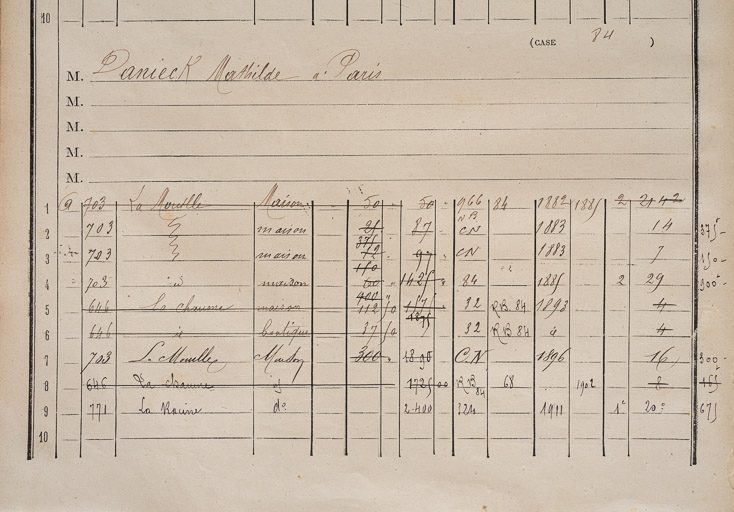 10
(CASE 84 )
M. Danieck Mathilde à Paris
M.
M.
M.
M.
1 a 703 La Mouille Maison 50 " 50 " 966 84 1882 1885 2 21 42
2 703 maison 21 87 CN 1883 14 375
3 703 maison 72 97 CN 1883 7 150
4 703 id maison 60 1425 " 84 1885 2 29 900
5 646 La chaume maison 112 50 32 RB. 84 1893 4
6 646 id boutique 37 50 32 RB. 84 4
7 703 La Mouille Maison 300 1890 CN 1896 16 300
8 646 La chaume id 1725 00 RB 84 68 1902 8
9 771 La Racine do 2.400 324 1911 1 20 675
10